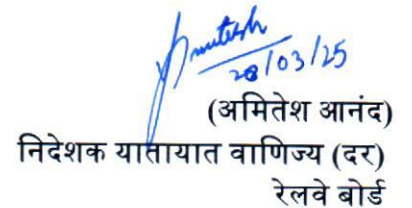 Amitesh
28/03/25
(अमितेश आनंद)
निदेशक यातायात वाणिज्य (दर)
रेलवे बोर्ड